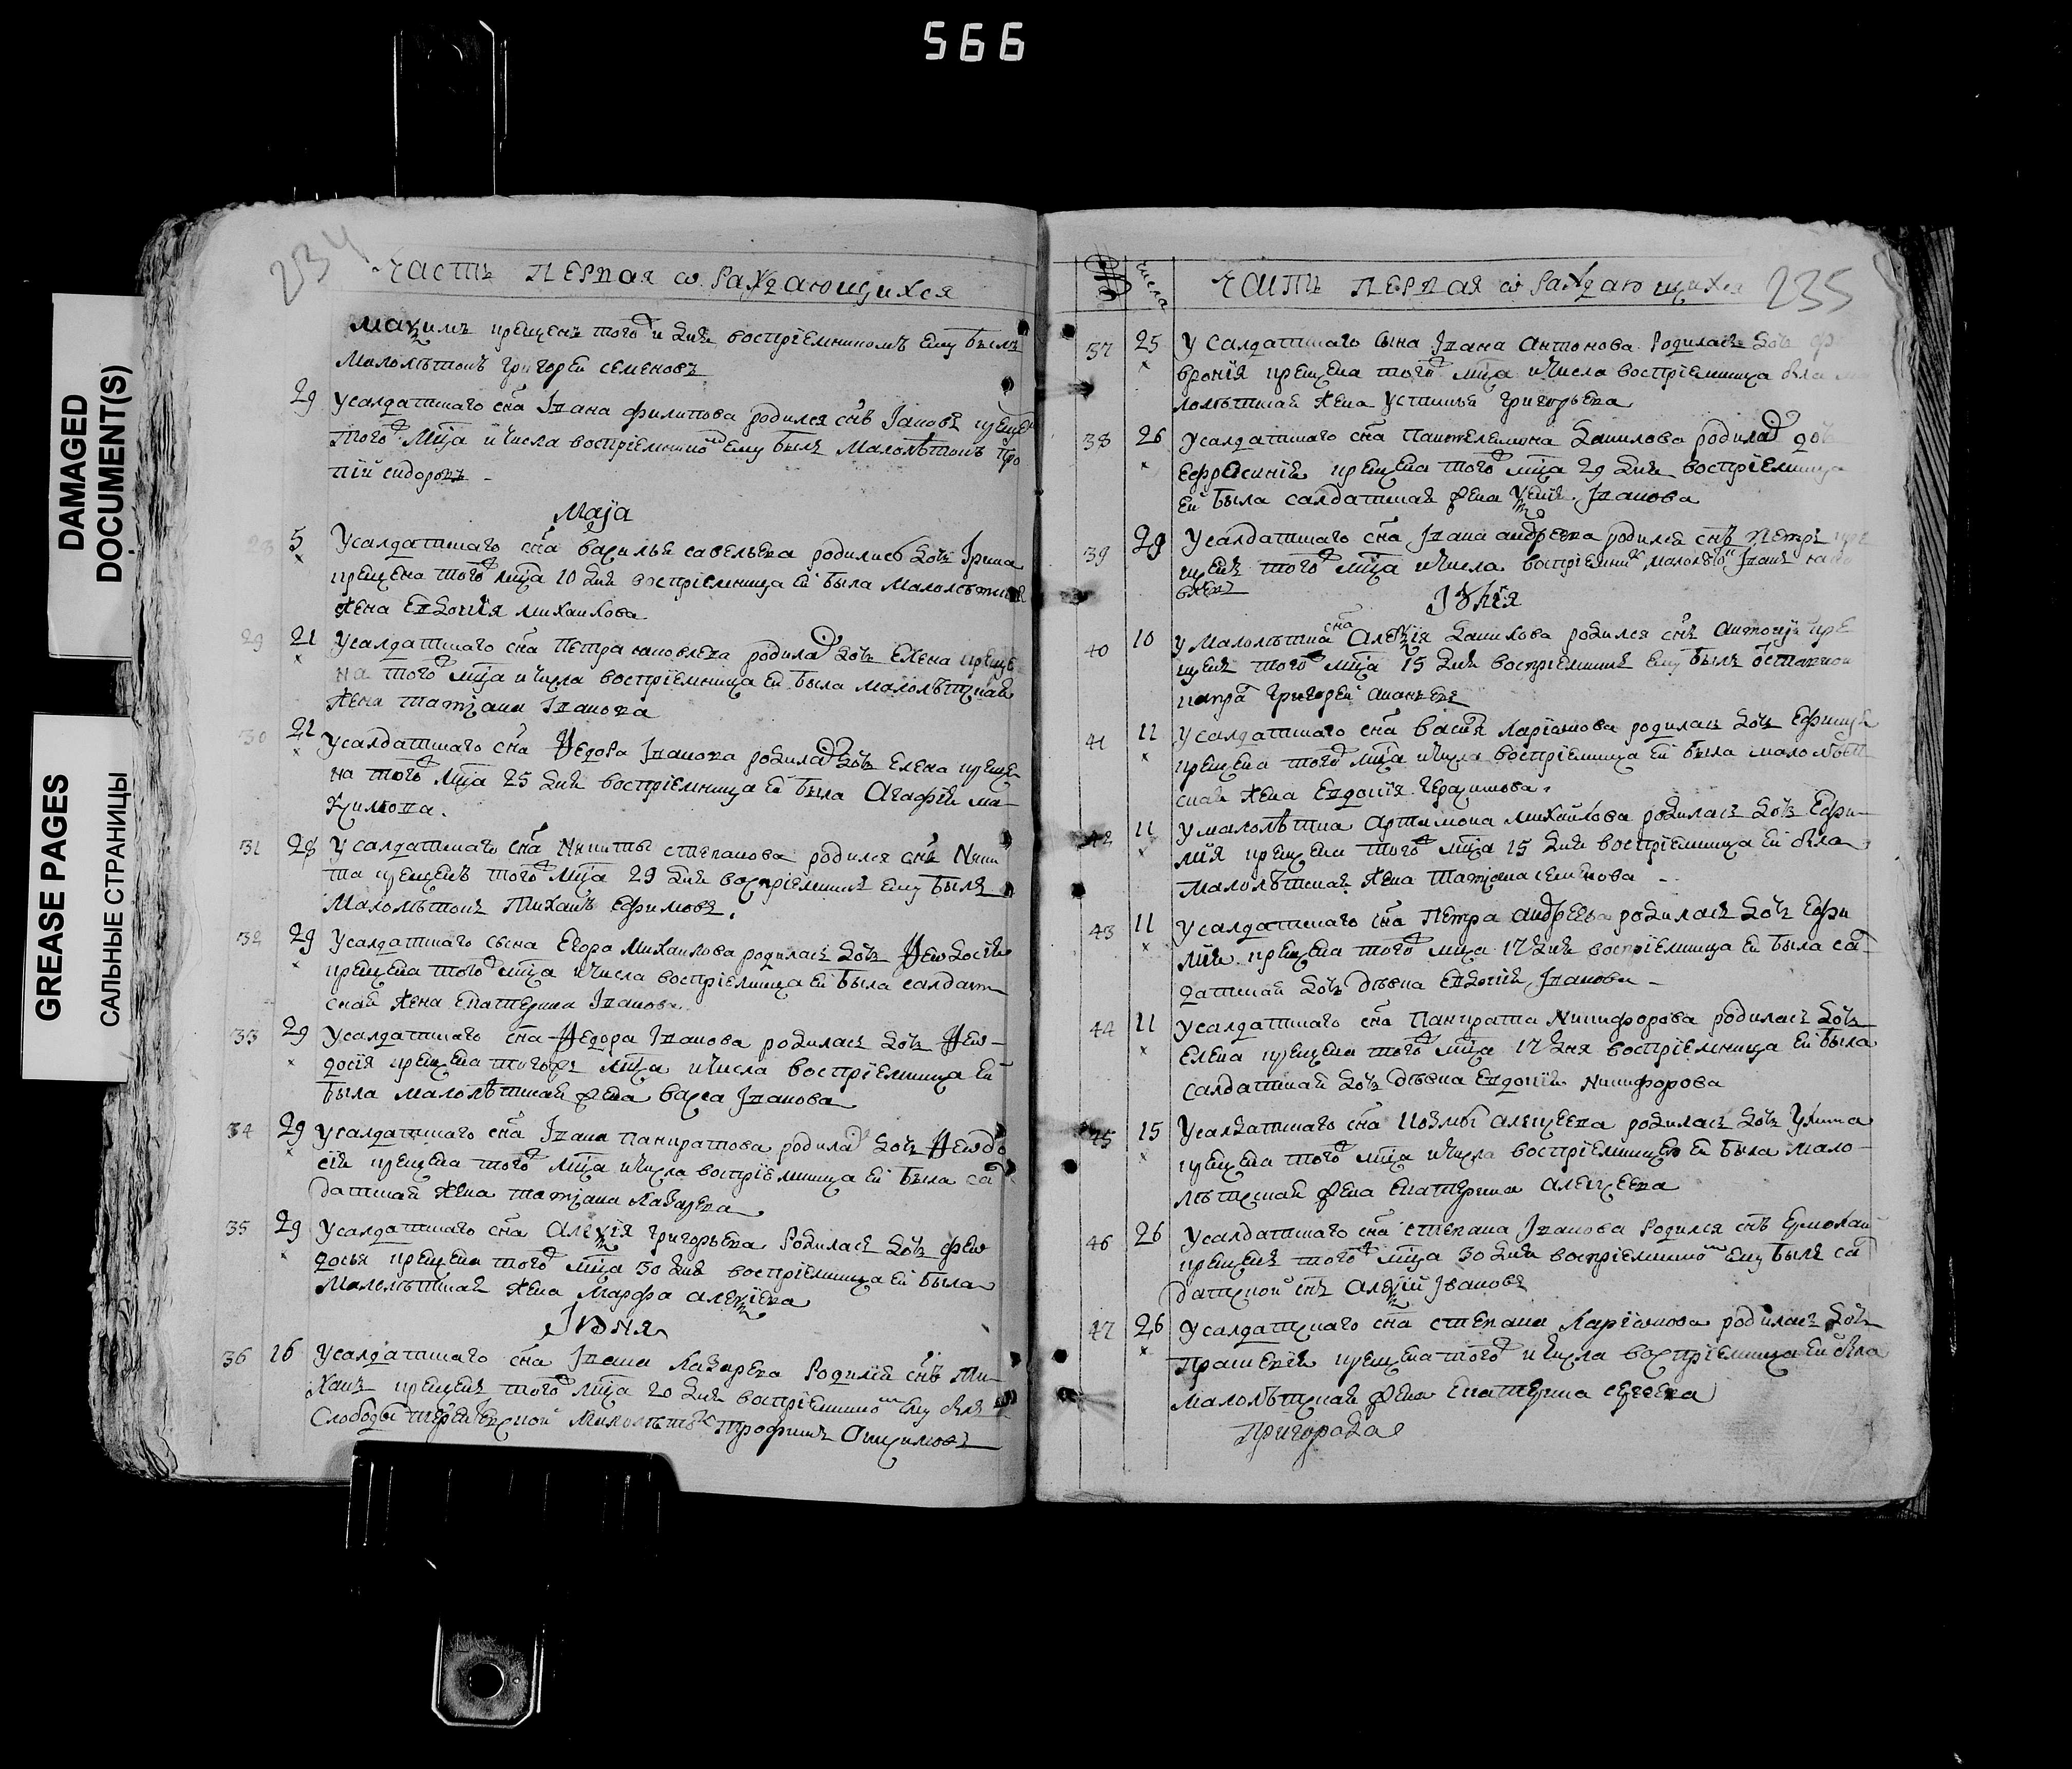 566
DAMAGED
DOCUMENT(S)
GREASE PAGES
САЛЬНЫЕ СТРАНИЦЫ
234
Часть первая ѡ раждающихся
Маѯимъ крещенъ того дня воспріемникомъ ему былъ
малолѣтокъ Григорей Семеновъ
29 У салдатскаго сна Iвана Филипова родился снъ Iаковъ
того мца и числа воспріемнико ему былъ малолѣтокъ
пій Сидоровъ
Маiя
5 У салдатскаго сна Василья Савельева родилась дочь Iрина
крещена того мца 10 дня воспріемница ей была малолѣтная
жена Евдокія Михаилова
29 21 У салдатскаго сна Петра Яковлева родила дочь Елена креще
на того мца и числа воспріемница ей была малолѣтская
жена Татiана Iванова
30 21 У салдатскаго сна Ѳедора Iванова родила дочь Елена креще
на того мца 25 дня воспріемница ей была Агафія Ма
ѯимова
31 28 У салдатскаго сна Никиты Степанова родился снъ Ники
та крещенъ того мца 29 дня воспріемникъ ему былъ
малолѣтокъ Михаилъ Ефимовъ
32 29 У салдатскаго сына Егора Михаилова родилась дочь Ѳеѡдосія
крещена того мца и числа воспріемница ей была салдат
ская жена Екатерина Iванова
33 29 У салдатскаго сна Ѳедора Iванова родилась дочь Ѳеѡ
досія крещена того мца и числа воспріемница ей
была малолѣтская жена Васса Iванова
34 29 У салдатскаго сна Iвана Панкратова родила дочь Ѳеѡдо
сія крещена того мца и числа воспріемница ей была са
датская жена Татiана Лазарева
35 29 У салдатскаго сна Алеѯія Григорьева родилась дочь Феѡ
досья крещена того мца 30 дня воспріемница ей была
малолѣтская жена Марфа Алеѯіева
Iюня
36 16 У салдатскаго сна Iвана Лазарева родился снъ Ти
хонъ крещенъ того мца 20 дня воспріемнико ему былъ
слободы малолѣтокъ Трофимъ
числа
Часть первая ѡ раждающихся 235
37 25 У салдатскаго сына Iвана Антонова родилась дочь Фе
вронія крещена того мца и числа воспріемница была ма
лолѣтская жена Устинья Григорьева
38 26 У салдатскаго сна Пантелемона Данилова родила доч
Ефросинія крещена того мца 29 дня воспріемница
ей была салдатская жена Ѯенія Iванова
39 29 У салдатскаго сна Iвана Андреева родился снъ Петръ кре
щенъ того мца и числа воспріемник малолѣто Iванъ Яко
влевъ
Iюлія
40 10 У малолѣтка сна Алеѯія Данилова родился снъ Антоній кре
щенъ того мца 15 дня воспріемникъ ему былъ
Григорей Ананьевъ
41 11 У салдатскаго сна Василя Ларіонова родилась дочь Ефимія
крещена того мца и числа воспріемница ей была малолѣт
ская жена Евдокія Герасимова
42 11 У малолѣтка Артамона Михаилова родилась дочь Ефи
мія крещена того мца 15 дня воспріемница ей была
малолѣтская жена Татiана Семенова
43 11 У салдатскаго сна Петра Андреева родилась дочь Ефи
мія крещена того мца 17 дня воспріемница ей была са
датская дочь дѣвка Евдокія Iванова
44 11 У салдатскаго сна Панкрата Никифорова родилась дочь
Елена крещена того мца 17 дня воспріемница ей была
салдатская дочь дѣвка Евдокія Никифорова
45 15 У салдатскаго сна Козмы Алексеева родилась дочь
крещена того мца и числа воспріемницею ей была мало
лѣтская жена Екатерина Алексеева
46 26 У салдатскаго сна Степана Iванова родился снъ Ермолай
крещенъ того мца 30 дня воспріемнико ему былъ са
датской снъ Алеѯій Iвановъ
47 26 У салдатскаго сна Степана Ларіонова родилась дочь
Прасковія крещена того и числа воспріемница ей была
малолѣтская жена Екатерина Сергеева
Пригорода